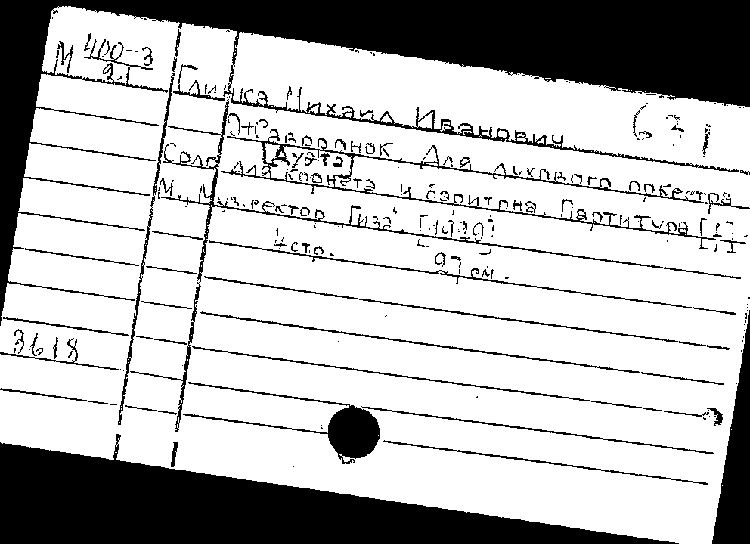 М 400-3
21
631
Глинка Михаил Иванович
Жаворонок. Для духового оркестра
[Дуэта]
Соло для корнета и баритона. Партитура [1].
М., Муз.сектор Гиза, [1929]
4 стр. 27 см.
3618